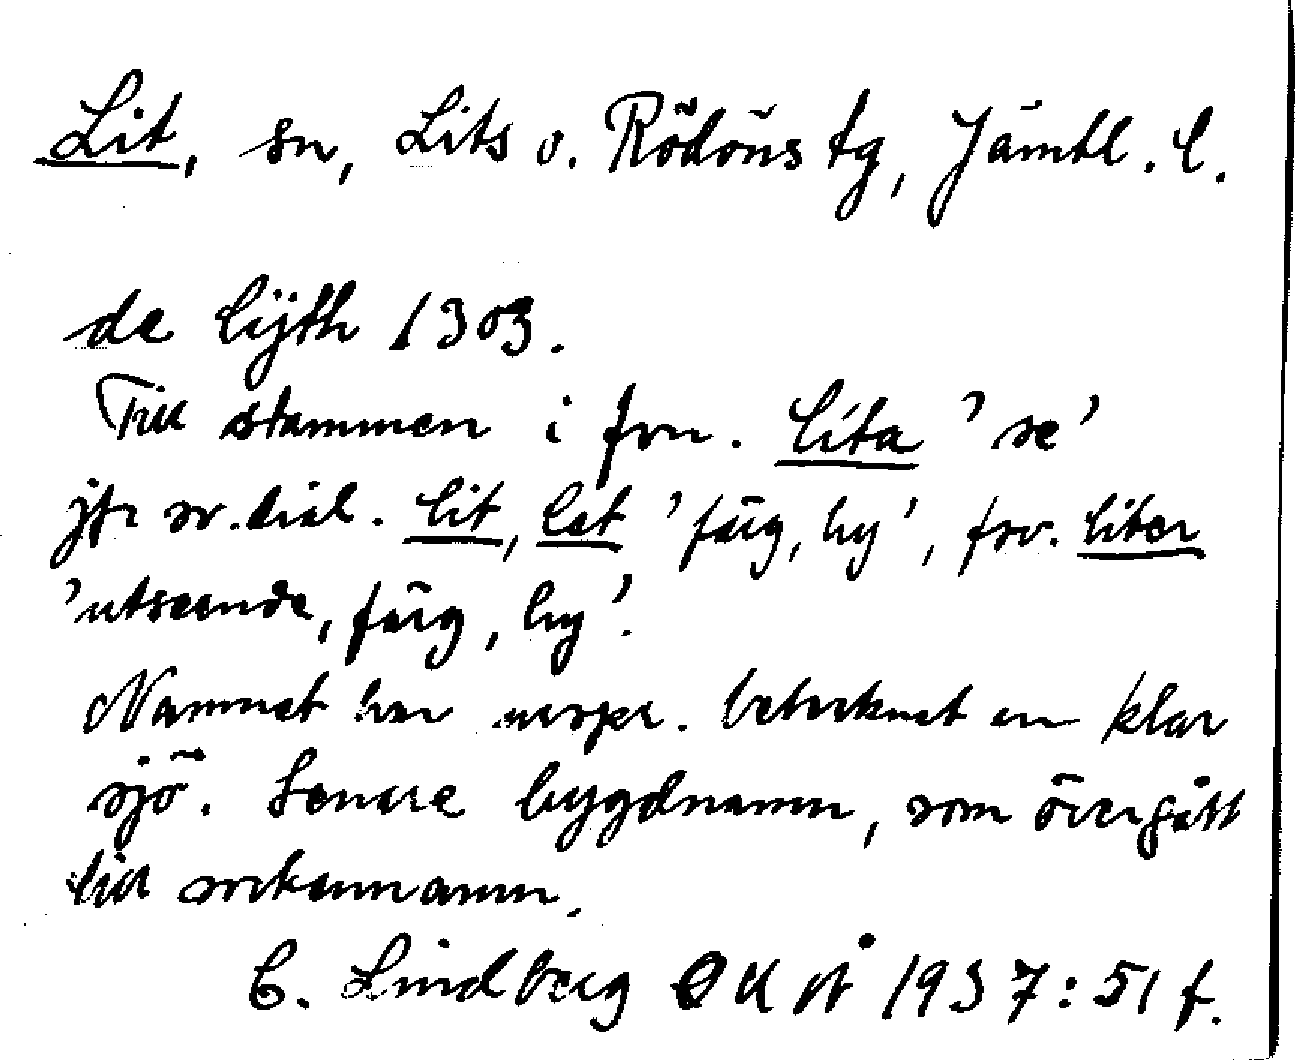 Lit, sn, Lits o. Rödöns tg, Jämtl. l.
de lijth 1303.
Till stammen i fvn. líta 'se'
jfr sv.dial. lit, let 'färg, hy', fsv. liter
'utseende, färg, hy'.
Namnet har urspr. betecknat en klar
sjö. Senare bygdnamn, som övergått
till sockennamn.
C. Lindberg OUÅ 1937:51 f.